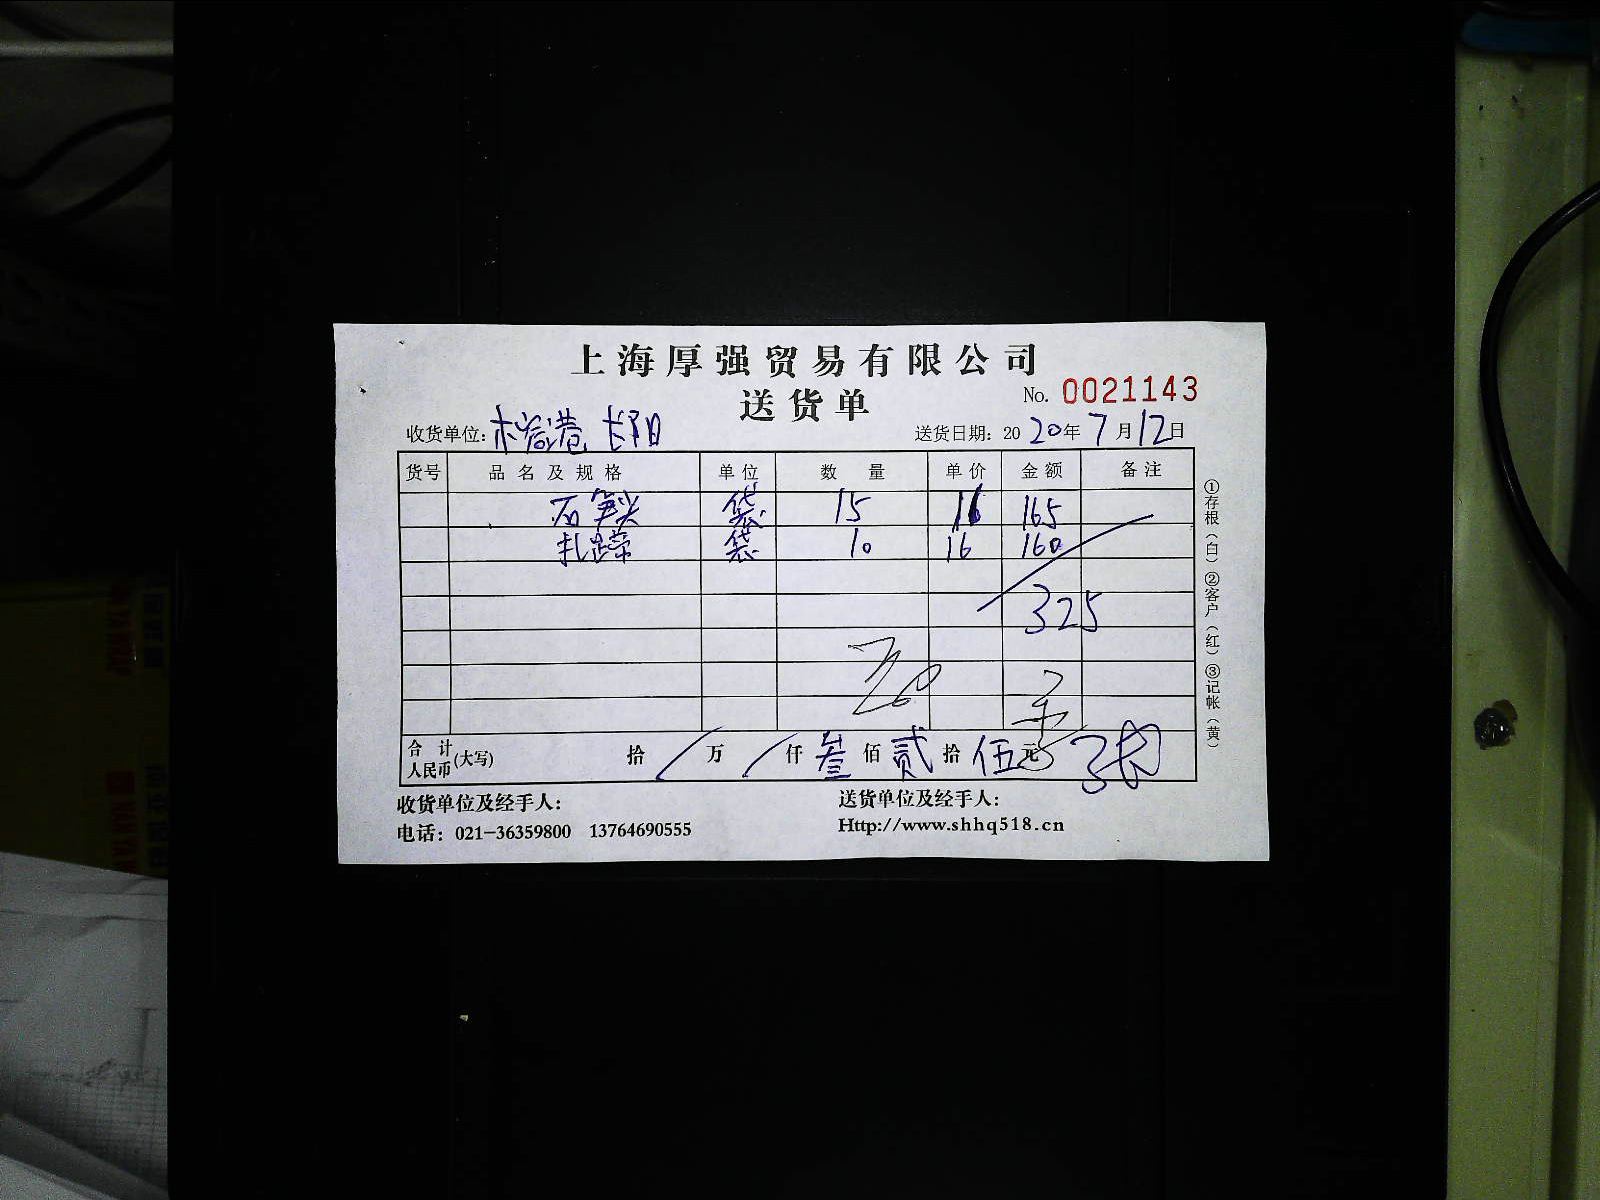 上海厚强贸易有限公司
送货单
No. 0021143
收货单位: 长阳
送货日期: 2020年7月12日
货号 品名及规格 单位 数量 单价 金额 备注
石笋尖 袋 15 11 165
扎蹄 袋 10 16 160
325
合计人民币(大写) 拾/万/仟叁佰贰拾伍元
收货单位及经手人: 送货单位及经手人:
电话: 021-36359800 13764690555 Http://www.shhq518.cn
①存根(白)②客户(红)③记帐(黄)